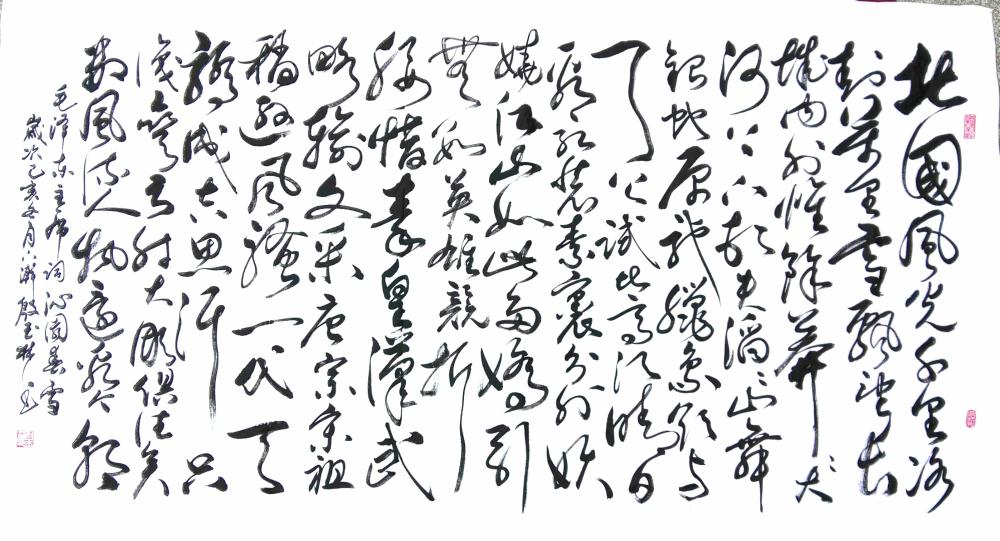 北國風光千里冰
封萬里雪飄望長
城內外惟餘莽〻大
河上下頓失滔〻山舞
銀蛇原馳蠟象欲與
天公試比高須晴日
看紅裝素裹分外妖
嬈江山如此多嬌引
無數英雄競折
腰惜秦皇漢武
略輸文采唐宗宋祖
稍遜風騷一代天
驕成吉思汗只
識彎弓射大雕俱往矣
數風流人物還看今朝
毛澤东主席詞沁園春雪
歲次己亥冬月下澣殷玉林